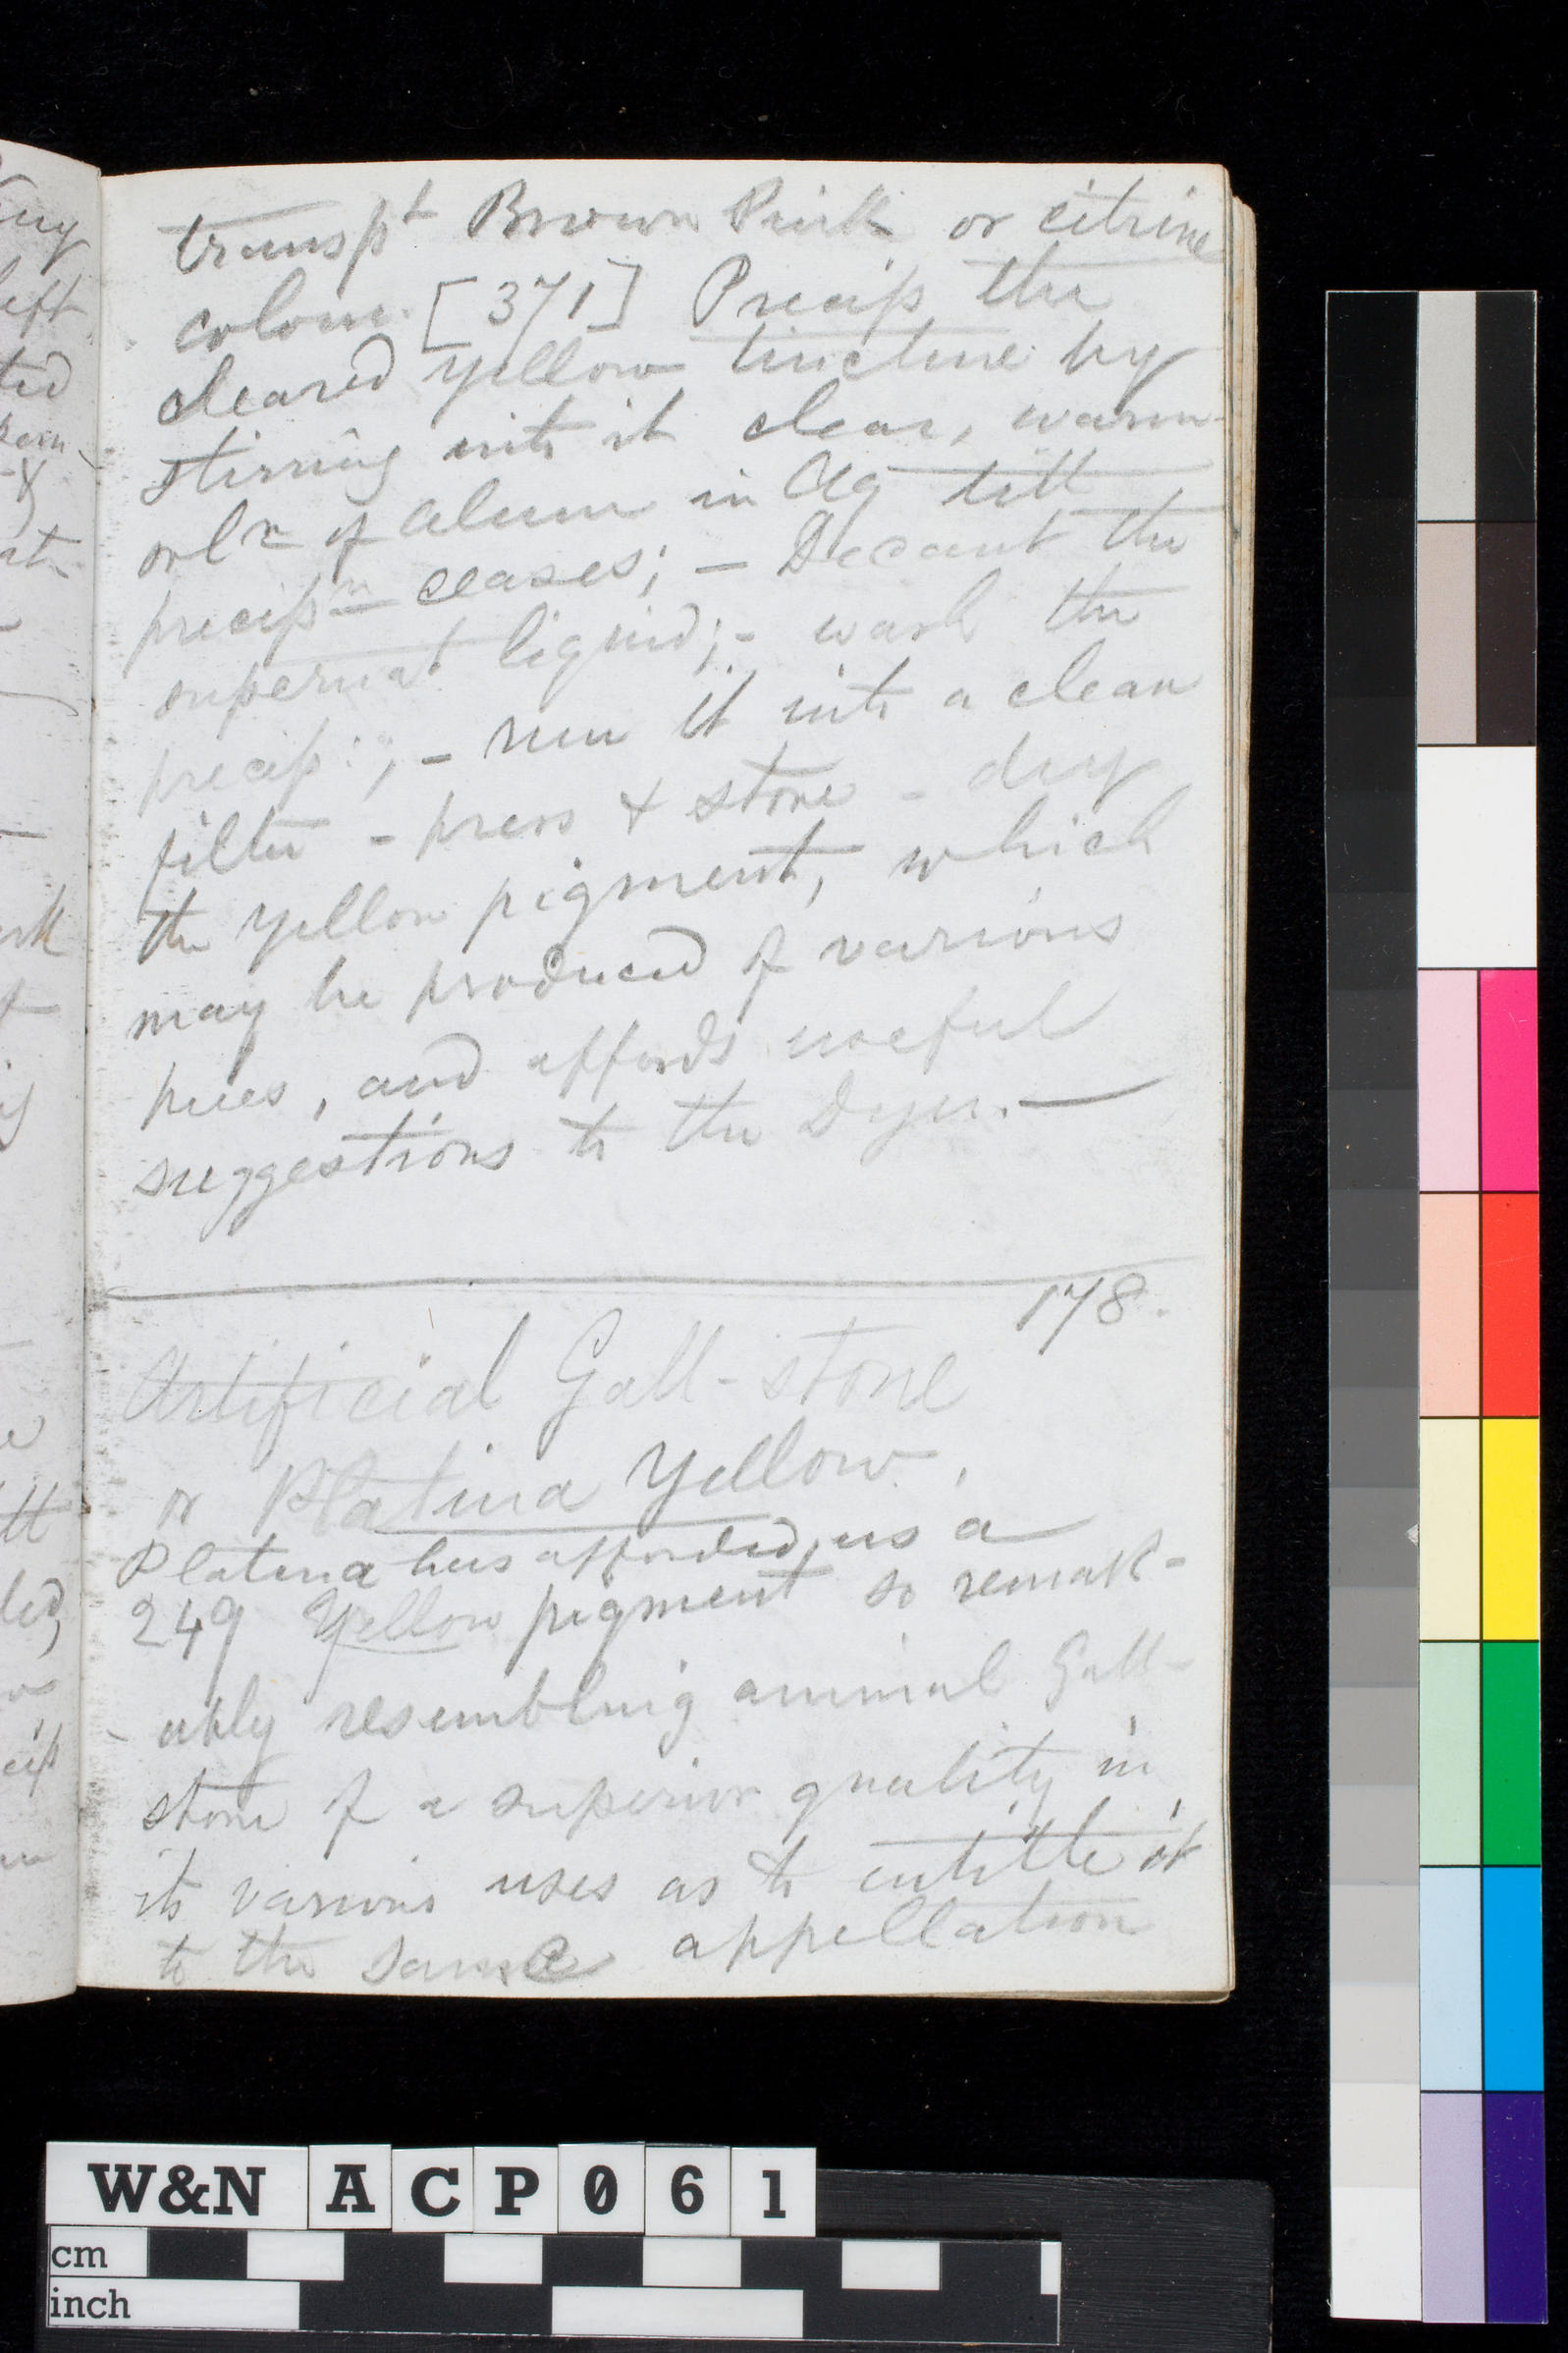 transpt Brown Pink or citrine
colour. [371] Precip the
cleared yellow tincture by
stirring into it clear, warm
soln of alum in Aq till
precipn ceases; – Decant the
supernat liquid; – wash the
precip:, – run it into a clean
filter – press & stove – dry
the yellow pigment, which
may be produced of various
hues, and affords useful
suggestions to the Dyer. —
178.
Artificial Gall-stone
or Platina Yellow.
Platina has afforded us a
249 Yellow pigment so remark-
ably resembling animal Gall-
stone of a superior quality in
its various uses as to entitle it
to the same appellation
W&N ACP061
cm
inch